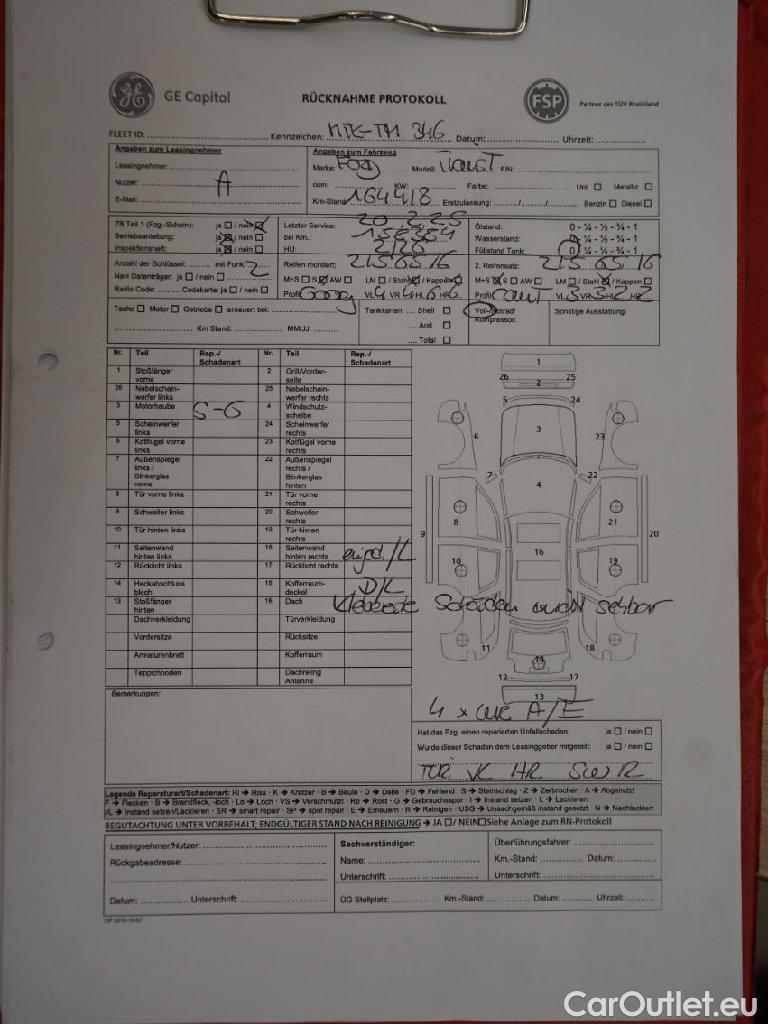 GE Capital RÜCKNAHME PROTOKOLL FSP Partner des TÜV Rheinland
FLEET ID: Kennzeichen: MTK-TM 346 Datum: Uhrzeit:
Angaben zum Leasingnehmer
Leasingnehmer:
Nutzer: A
E-Mail:
Angaben zum Fahrzeug
Marke: Ford Modell: FIN:
ccm: KW: Farbe: Uni Metallic
Km-Stand: 164418 Erstzulassung: / / Benzin Diesel
ZB Teil 1 (Fzg.-Schein): ja / nein
Betriebsanleitung: ja / nein
Inspektionsheft: ja / nein
Letzter Service:
bei Km.:
HU:
Ölstand: 0 - ¼ - ½ - ¾ - 1
Wasserstand: 0 - ¼ - ½ - ¾ - 1
Füllstand Tank: 0 - ¼ - ½ - ¾ - 1
Anzahl der Schlüssel: mit Funk 2
Navi Datenträger: ja / nein
Radio Code: Codekarte: ja / nein
Reifen montiert: 215 65 16
M+S S AW LM / Stahl / Kappen
Profil VL VR HL HR
2. Reifensatz: 215 65 16
M+S S AW LM / Stahl / Kappen
Profil VL VR HL HR
Tacho Motor Getriebe erneuer: bei:
Km Stand: MM/JJ:
Tankkarten Shell
Aral
Total
Not-/Notrad
Kompressor:
Sonstige Ausstattung:
Nr. Teil Rep.-/ Schadenart Nr. Teil Rep.-/ Schadenart
1 Stoßfänger vorne 2 Grill/Vorderseite
26 Nebelscheinwerfer links 25 Nebelscheinwerfer rechts
3 Motorhaube S-G 4 Windschutzscheibe
5 Scheinwerfer links 24 Scheinwerfer rechts
6 Kotflügel vorne links 23 Kotflügel vorne rechts
7 Außenspiegel links / Blinkerglas vorne 22 Außenspiegel rechts / Blinkerglas hinten
8 Tür vorne links 21 Tür vorne rechts
9 Schweller links 20 Schweller rechts
10 Tür hinten links 19 Tür hinten rechts
11 Seitenwand hinten links 18 Seitenwand hinten rechts
12 Rücklicht links 17 Rücklicht rechts
14 Heckabschlussblech 15 Kofferraumdeckel D/L
13 Stoßfänger hinten 16 Dach Klebereste Schäden nicht sehbar
Dachverkleidung Türverkleidung
Vordersitze Rücksitze
Armaturenbrett Kofferraum
Teppichboden Dachreling Antenne
1
26 25
2
5 24
3
6 23
7 22
4
8 21
9 20
16
10 19
11 18
14
12 17
13
4 x A/E
Bemerkungen:
Hat das Fzg. einen reparierten Unfallschaden: ja / nein
Wurde dieser Schaden dem Leasinggeber mitgeteilt: ja / nein
TÜR HR SW R
Legende Reparaturart/Schadenart: RI → Riss · K → Kratzer · B → Beule · D → Delle · FD → Fehlend · S → Steinschlag · Z → Zerbrochen · A → Abgenutzt
F → Flecken · B → Brandfleck, -loch · Lo → Loch · VS → Verschmutzt · Ro → Rost · G → Gebrauchsspur · I → Instand setzen · L → Lackieren
I/L → Instand setzen/Lackieren · SR → smart repair · SP → spot repair · E → Erneuern · R → Reinigen · USG → Unsachgemäß instand gesetzt · N → Nachlackiert
BEGUTACHTUNG UNTER VORBEHALT; ENDGÜLTIGER STAND NACH REINIGUNG → JA / NEIN Siehe Anlage zum RN-Protokoll
Leasingnehmer/Nutzer:
Rückgabeadresse:
Datum: Unterschrift:
Sachverständiger:
Name:
Unterschrift:
Überführungsfahrer:
Km.-Stand: Datum:
Unterschrift:
ÜG Stellplatz: Km.-Stand: Datum: Uhrzeit:
CarOutlet.eu